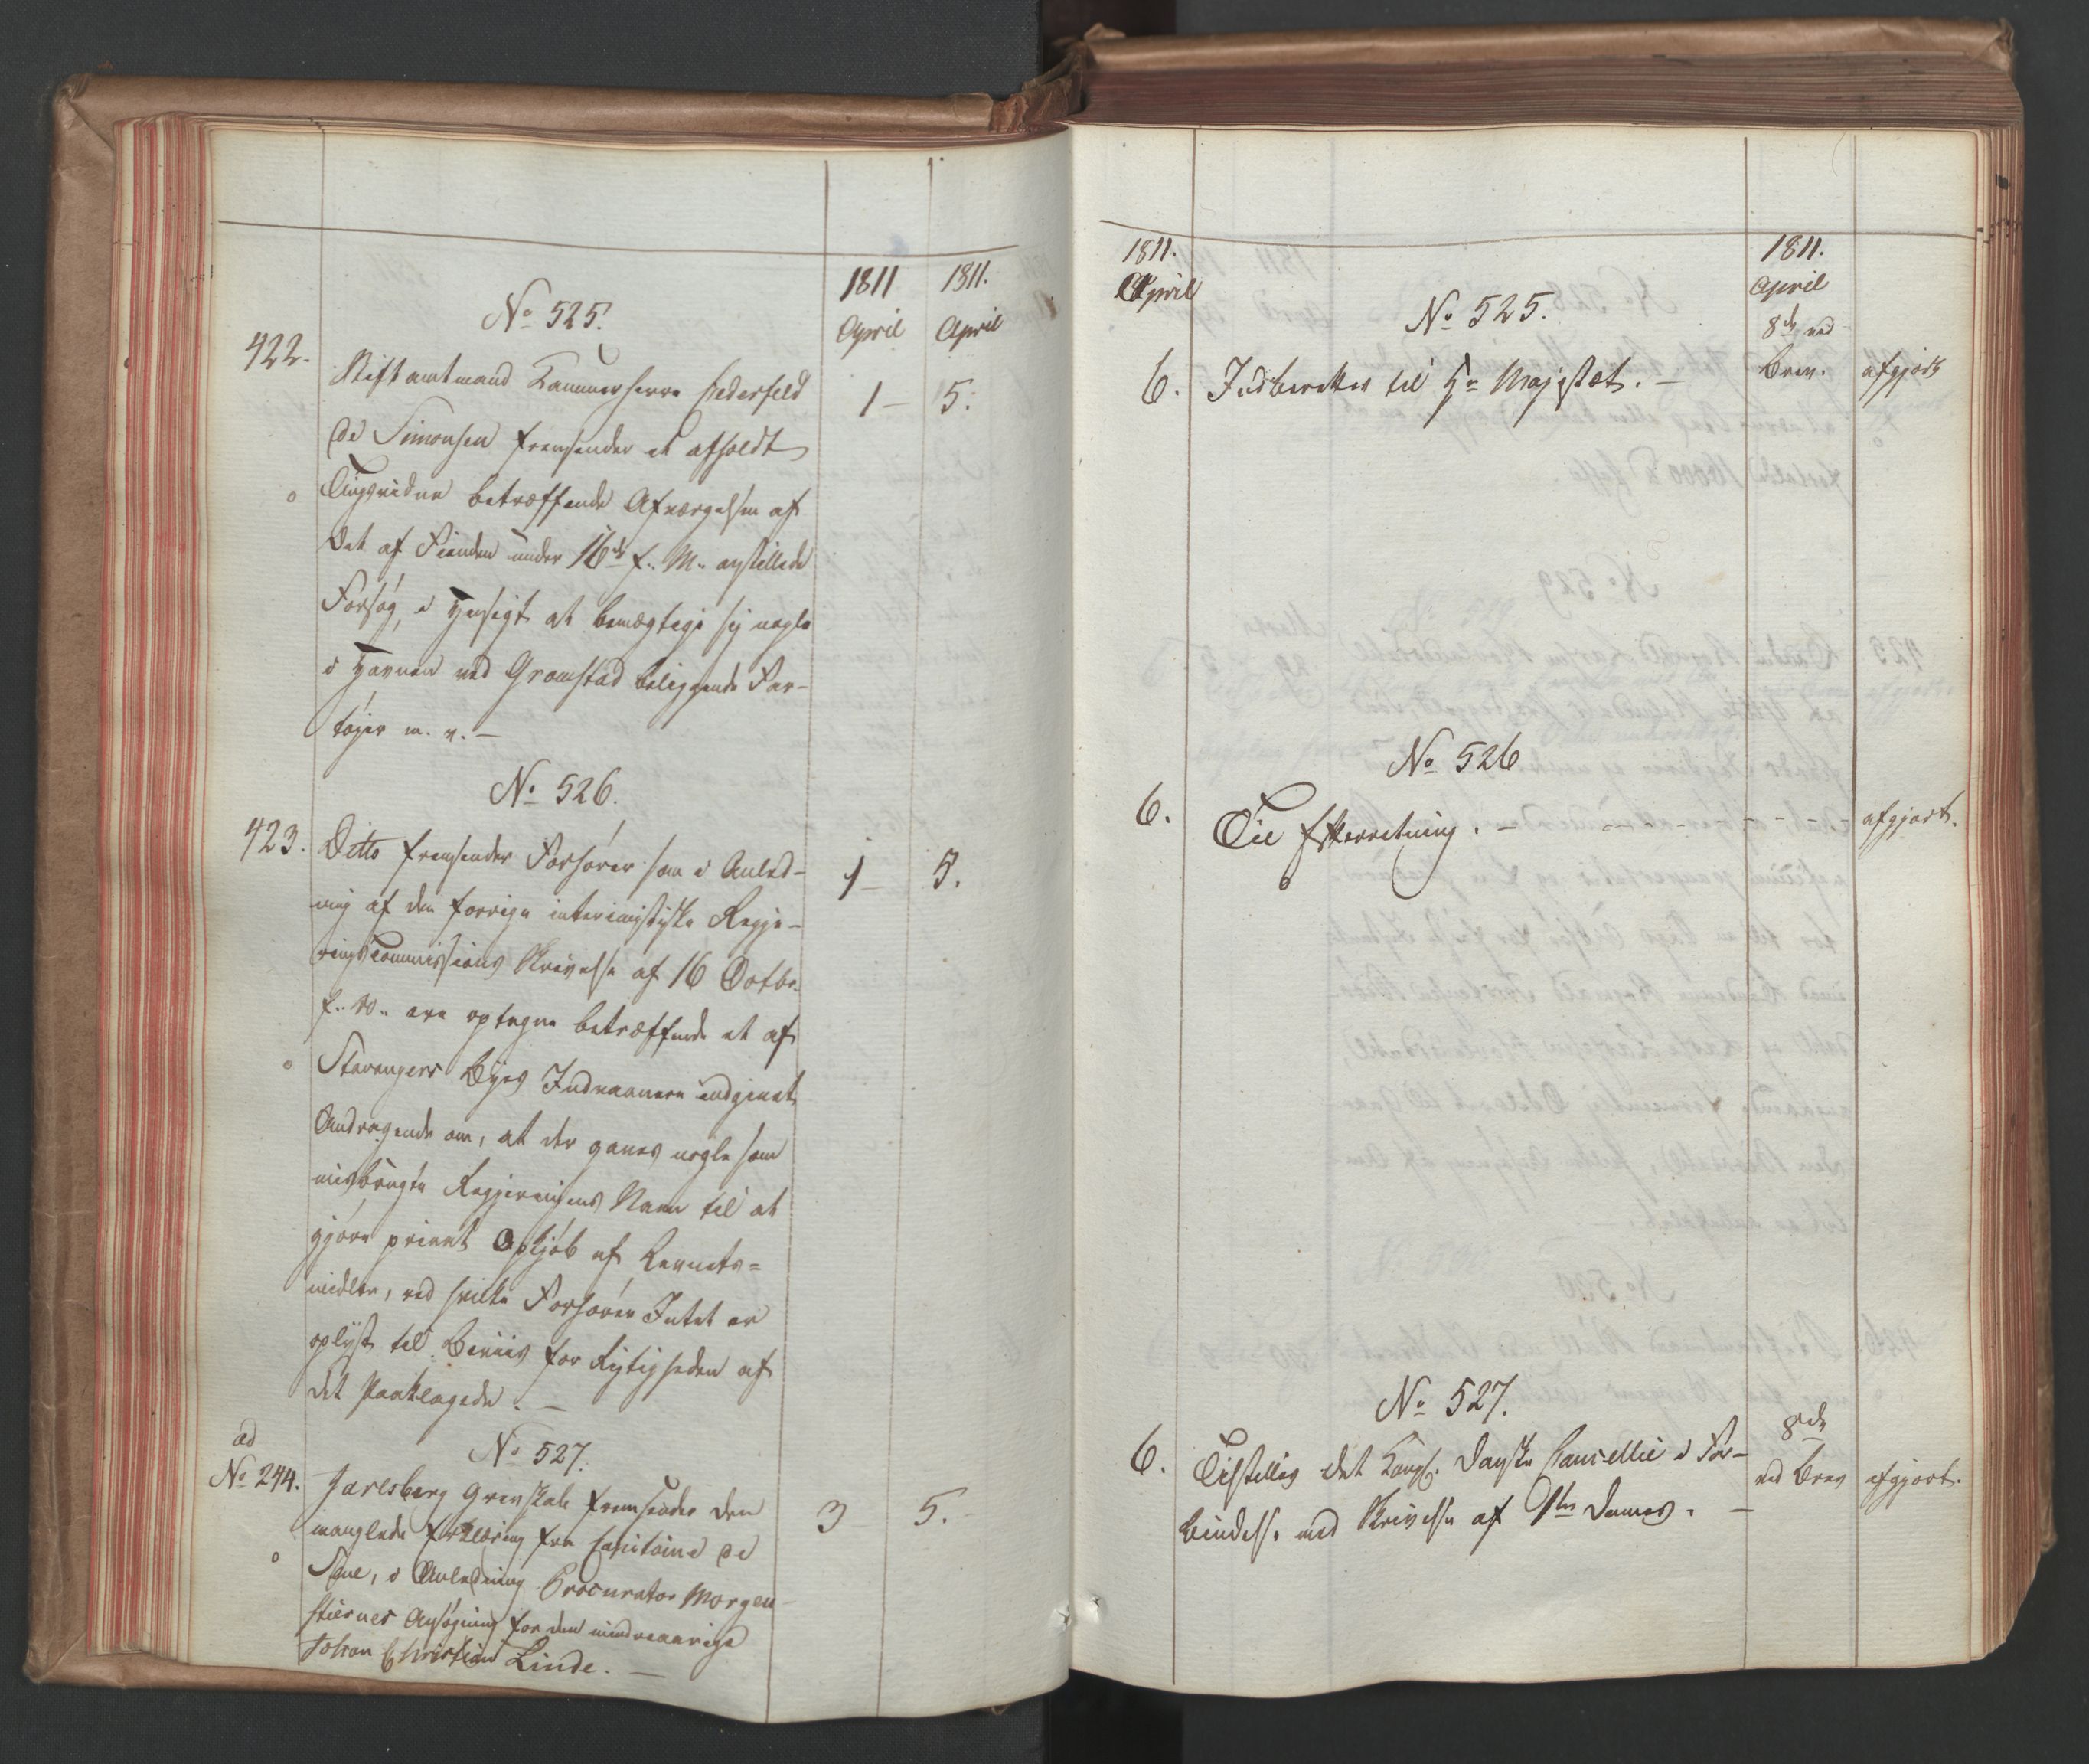 1811 1811.
April April
No 525.
422. Stiftamtmand Kammerherre Cederfeld 1 — 5.
de Simonsen fremsender et afholdt
Tingsvidne betræffende Afværgelsen af
det af Fienden under 16de f. M. anstillede
Forsøg, i Hensigt at bemægtige sig nogle
i Havnen ved Gromstad beliggende Far-
tøjer m. v. —
No 526.
423. Ditto fremsender Forhører som i Anled- 1 — 5.
ning af den forrige interimistiske Regje-
rings Commissions Skrivelse af 16 Octbr.
f. A. ere optagne betræffende et af
Stavangers Byes Indvaanere indgivet
Andragende om, at der gaves nogle som
misbrugte Regjeringens Navn til at
gjøre privat Opkjøb af Levnets=
midler, ved hvilke Forhører Intet er
oplyst til Beviis for Rigtigheden af
det Paaklagede. —
No 527.
ad
No 244. Jarlsberg Grevskab fremsender den 3 5.
manglede Erklæring fra Capitaine de
Seue, i Anledning Procurator Morgen-
stiernes Ansøgning for den mindreaarige
Johan Christian Linde. —
1811. 1811.
April April
No 525. 8de ved
6. Indberettes til Hs Majestæt. — Brev. afgjort
No 526
6. Til Efterretning. — - - - - - afgjort.
No 527. 8de
6. Tilstilles det Kongl. Danske Cancellie i For- ved Brev afgjort.
bindelse med Skrivelse af 1ste Dennes. —